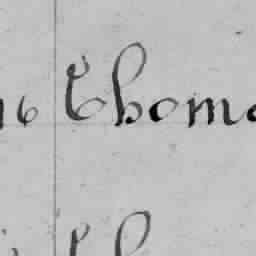 16 Thoma